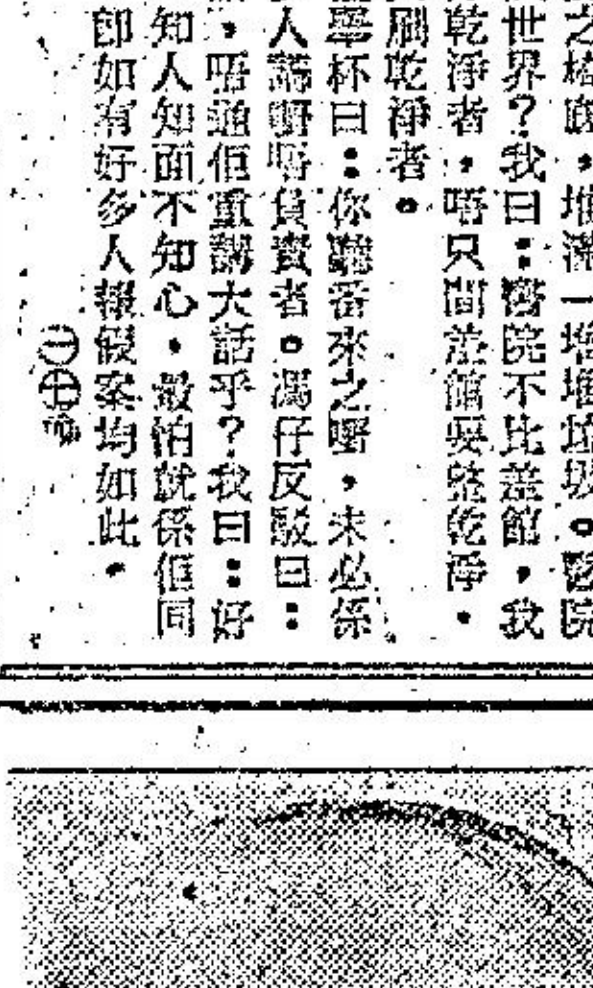 之樓底，堆滿一增堆垃圾。醫院
世界？我曰：醫院不比差館，我
乾淨者，唔只間差館要整乾淨，
刷乾淨者。
舉杯曰：你聽番來之嘢，未必係
人講嘢唔負責者。馮仔反駁曰：
，唔通佢重講大話乎？我曰：好
知人知面不知心，最怕就係佢同
即如有好多人報假案均如此。